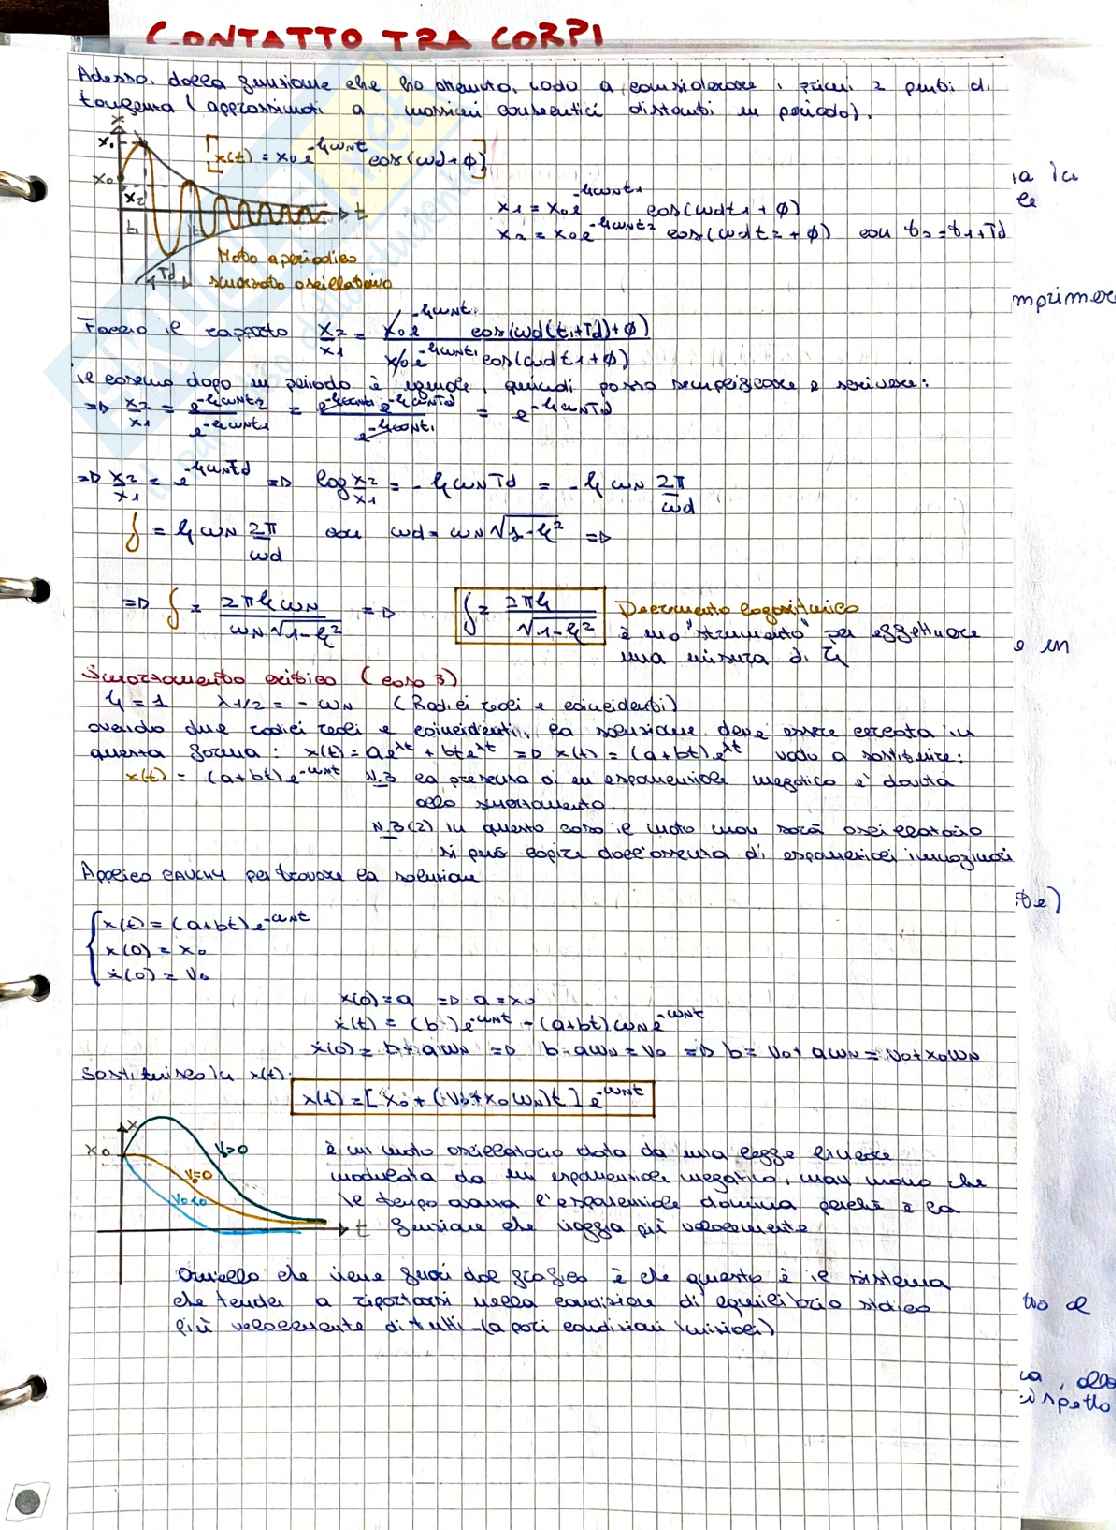 CONTATTO TRA CORPI
Adesso dalla funzione che ho ottenuto, vado a considerare i primi 2 punti di
tangenza (approssimati a massimi autentici distanti un periodo).
x
x₁
x₀
x₂
t₁
t
Td
[x(t) = x₀e^-ξωNt cos(ωd+ϕ)]
x₁ = x₀e^-ξωNt₁ cos(ωdt₁+ϕ)
x₂ = x₀e^-ξωNt₂ cos(ωdt₂+ϕ) con t₂=t₁+Td
Moto aperiodico
smorzato oscillatorio
Faccio il rapporto x₂/x₁ = x₀e^-ξωNt₁ cos(ωd(t₁+Td)+ϕ) / x₀e^-ξωNt₁ cos(ωdt₁+ϕ)
il coseno dopo un periodo è uguale, quindi posso semplificare e scrivere:
=D x₂/x₁ = e^-ξωNt₂ / e^-ξωNt₁ = e^-ξωNt₁ e^-ξωNTd / e^-ξωNt₁ = e^-ξωNTd
=D x₂/x₁ = e^-ξωNTd =D log x₂/x₁ = -ξωNTd = -ξ ωN 2π/ωd
δ = ξ ωN 2π/ωd con ωd = ωN√1-ξ² =D
=D δ = 2πξωN / ωN√1-ξ² =D δ = 2πξ / √1-ξ² Decremento logaritmico
è uno "strumento" per effettuare
una misura di ξ
Smorzamento critico (caso 3)
ξ = 1 λ1/2 = -ωN (Radici reali e coincidenti)
avendo due radici reali e coincidenti, la soluzione deve essere cercata in
questa forma: x(t) = ae^λt + bte^λt =D x(t) = (a+bt)e^λt vado a sostituire:
x(t) = (a+bt)e^-ωNt N.B la presenza di un esponenziale negativo è dovuta
allo smorzamento
N.B(2) in questo caso il moto non sarà oscillatorio
si può capire dall'assenza di esponenziali immaginari
Applico CAUCHY per trovare la soluzione
x(t) = (a+bt)e^-ωNt
x(0) = x₀
ẋ(0) = v₀
x(0) = a =D a = x₀
ẋ(t) = (b)e^-ωNt - (a+bt)ωNe^-ωNt
ẋ(0) = b - aωN =D b - aωN = v₀ =D b = v₀ + aωN = v₀ + x₀ωN
Sostituisco in x(t):
x(t) = [x₀ + (v₀+x₀ωN)t] e^-ωNt
x
x₀
V>0
V=0
V₀<0
t
è un moto oscillatorio data da una legge lineare
modulata da un esponenziale negativo, man mano che
il tempo avanza l'esponenziale domina perché è la
funzione che viaggia più velocemente
Quello che viene fuori dal grafico è che questo è il sistema
che tende a riportarsi nella condizione di equilibrio statico
più velocemente di tutti (a pari condizioni iniziali)
a la
mprimer
e in
te)
tro al
ca, dal
rispetto